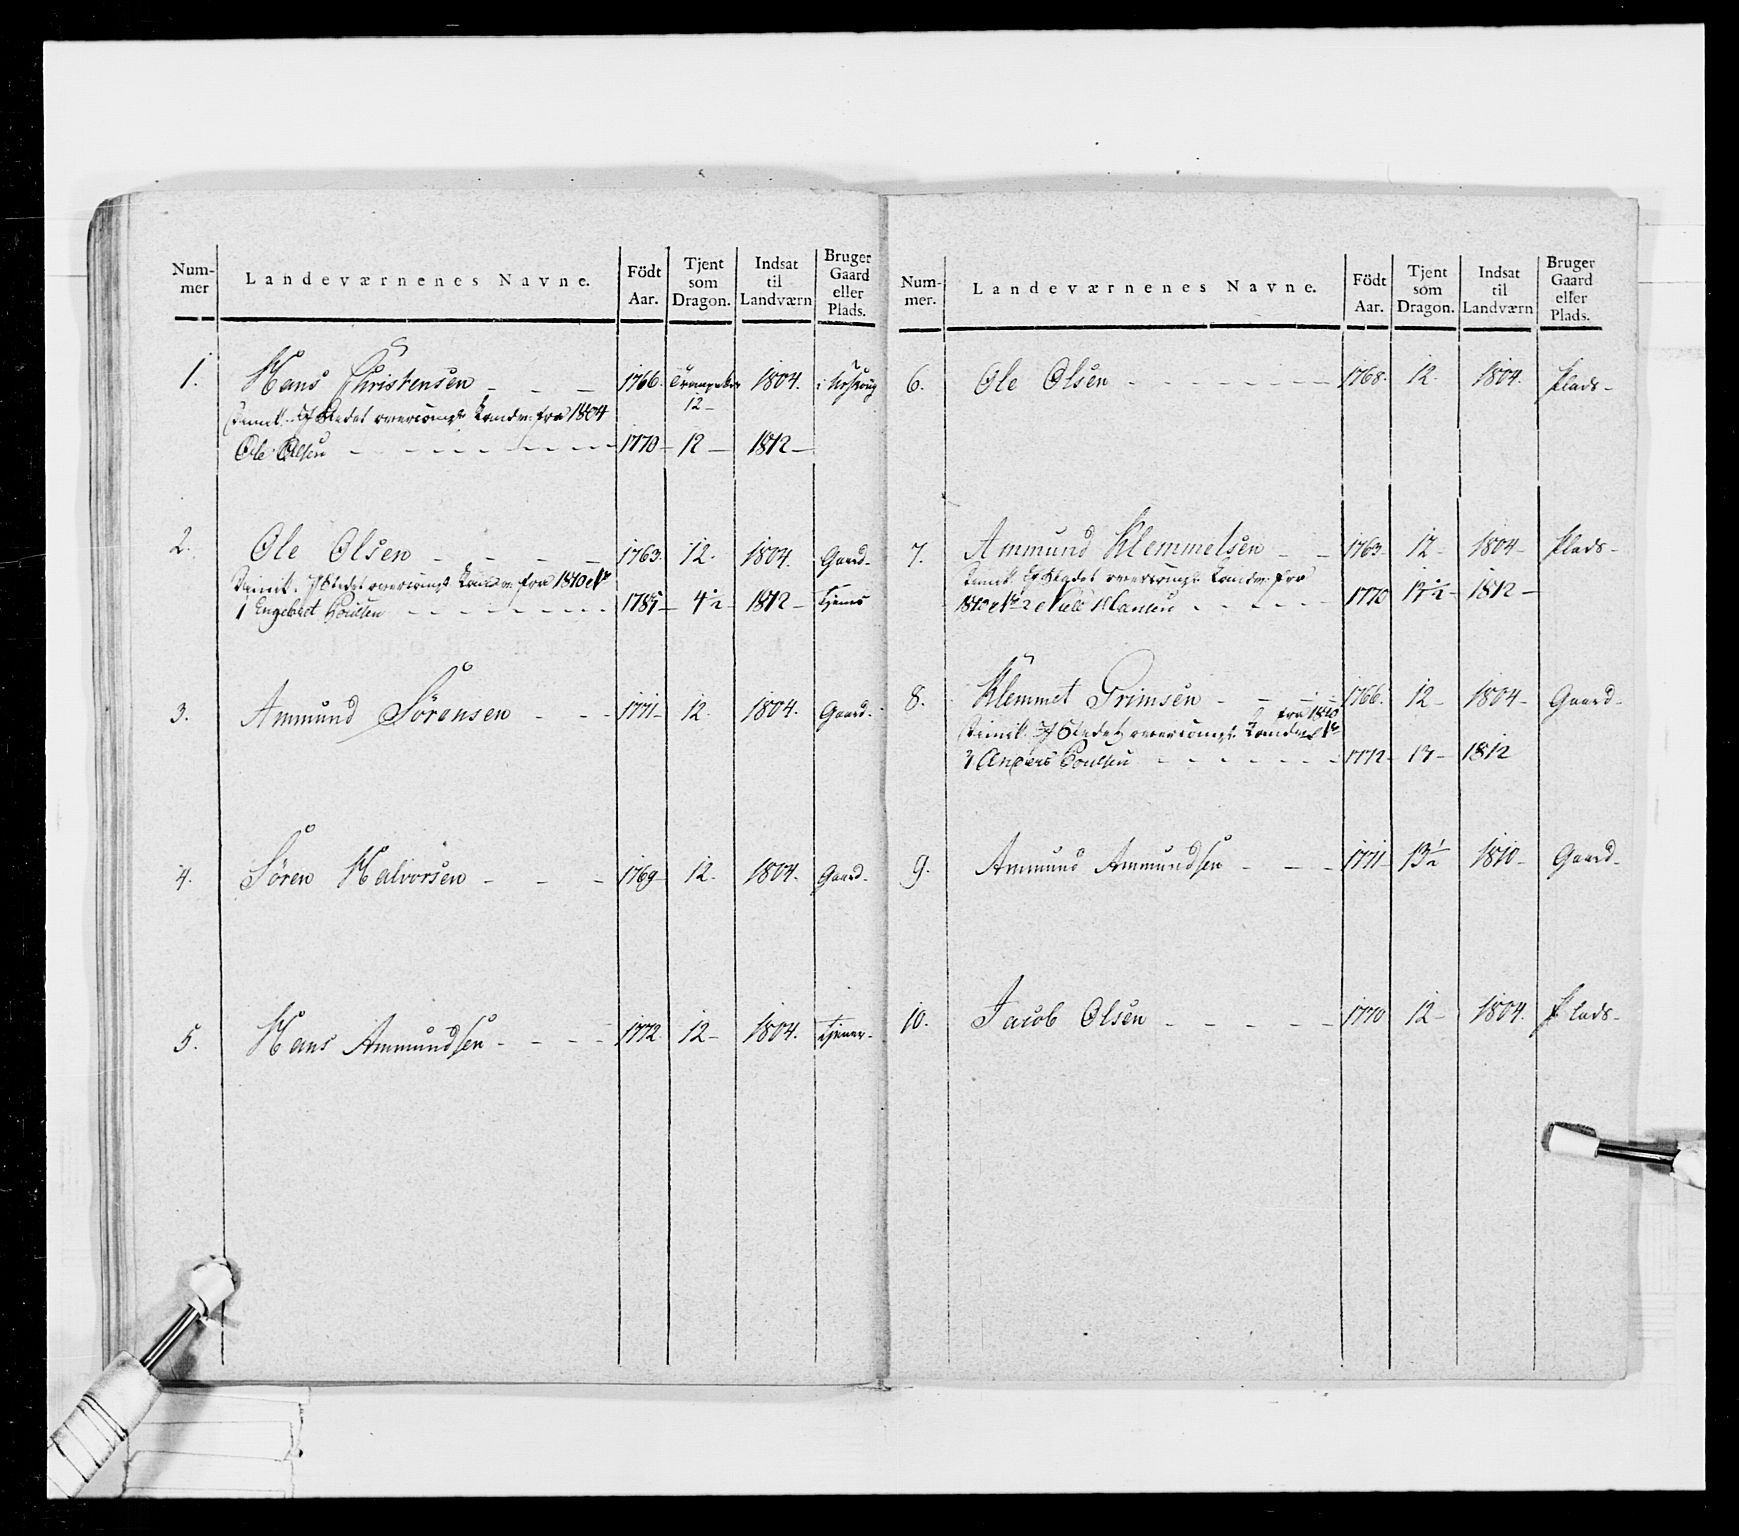 Num-
mer
Landeværnenes Navne.
Födt
Aar.
Tjent
som
Dragon.
Indsat
til
Landværn
Bruger
Gaard
eller
Plads.
1. Hans Christensen 1766. Trompeter 1804.
12
overcomp. Landv. fra 1804
Ole Olsen 1770 12 1812
2. Ole Olsen 1763. 12. 1804. Gaard.
overcomp. Landv. fra 1810 No
1 Engebret Poulsen 4½ 1812
3. Ammund Sörensen 1771 12. 1804. Gaard.
4. Sören Halvorsen 1769 12. 1804. Gaard.
5. Hans Ammundsen 1772. 12 1804. tjener.
Num-
mer.
Landeværnenes Navne.
Födt
Aar.
Tjent
som
Dragon.
Indsat
til
Landværn
Bruger
Gaard
eller
Plads.
6. Ole Olsen 1768. 12. 1804. Plads
7. Ammund Klemmetsen 1763. 12 1804 Plads
overcomp. Landv. fra
1810 No 2 Niels Hansen 1770 1812
8. Klemmet Grimsen 1766. 12 1804 Gaard
fra 1810
overcomp. Landv. No
3 Anders Poulsen 1772 13 1812
9. Ammund Ammundsen 1771 13½ 1810 Gaard
10. Jacob Olsen 1770 12 1804. Plads